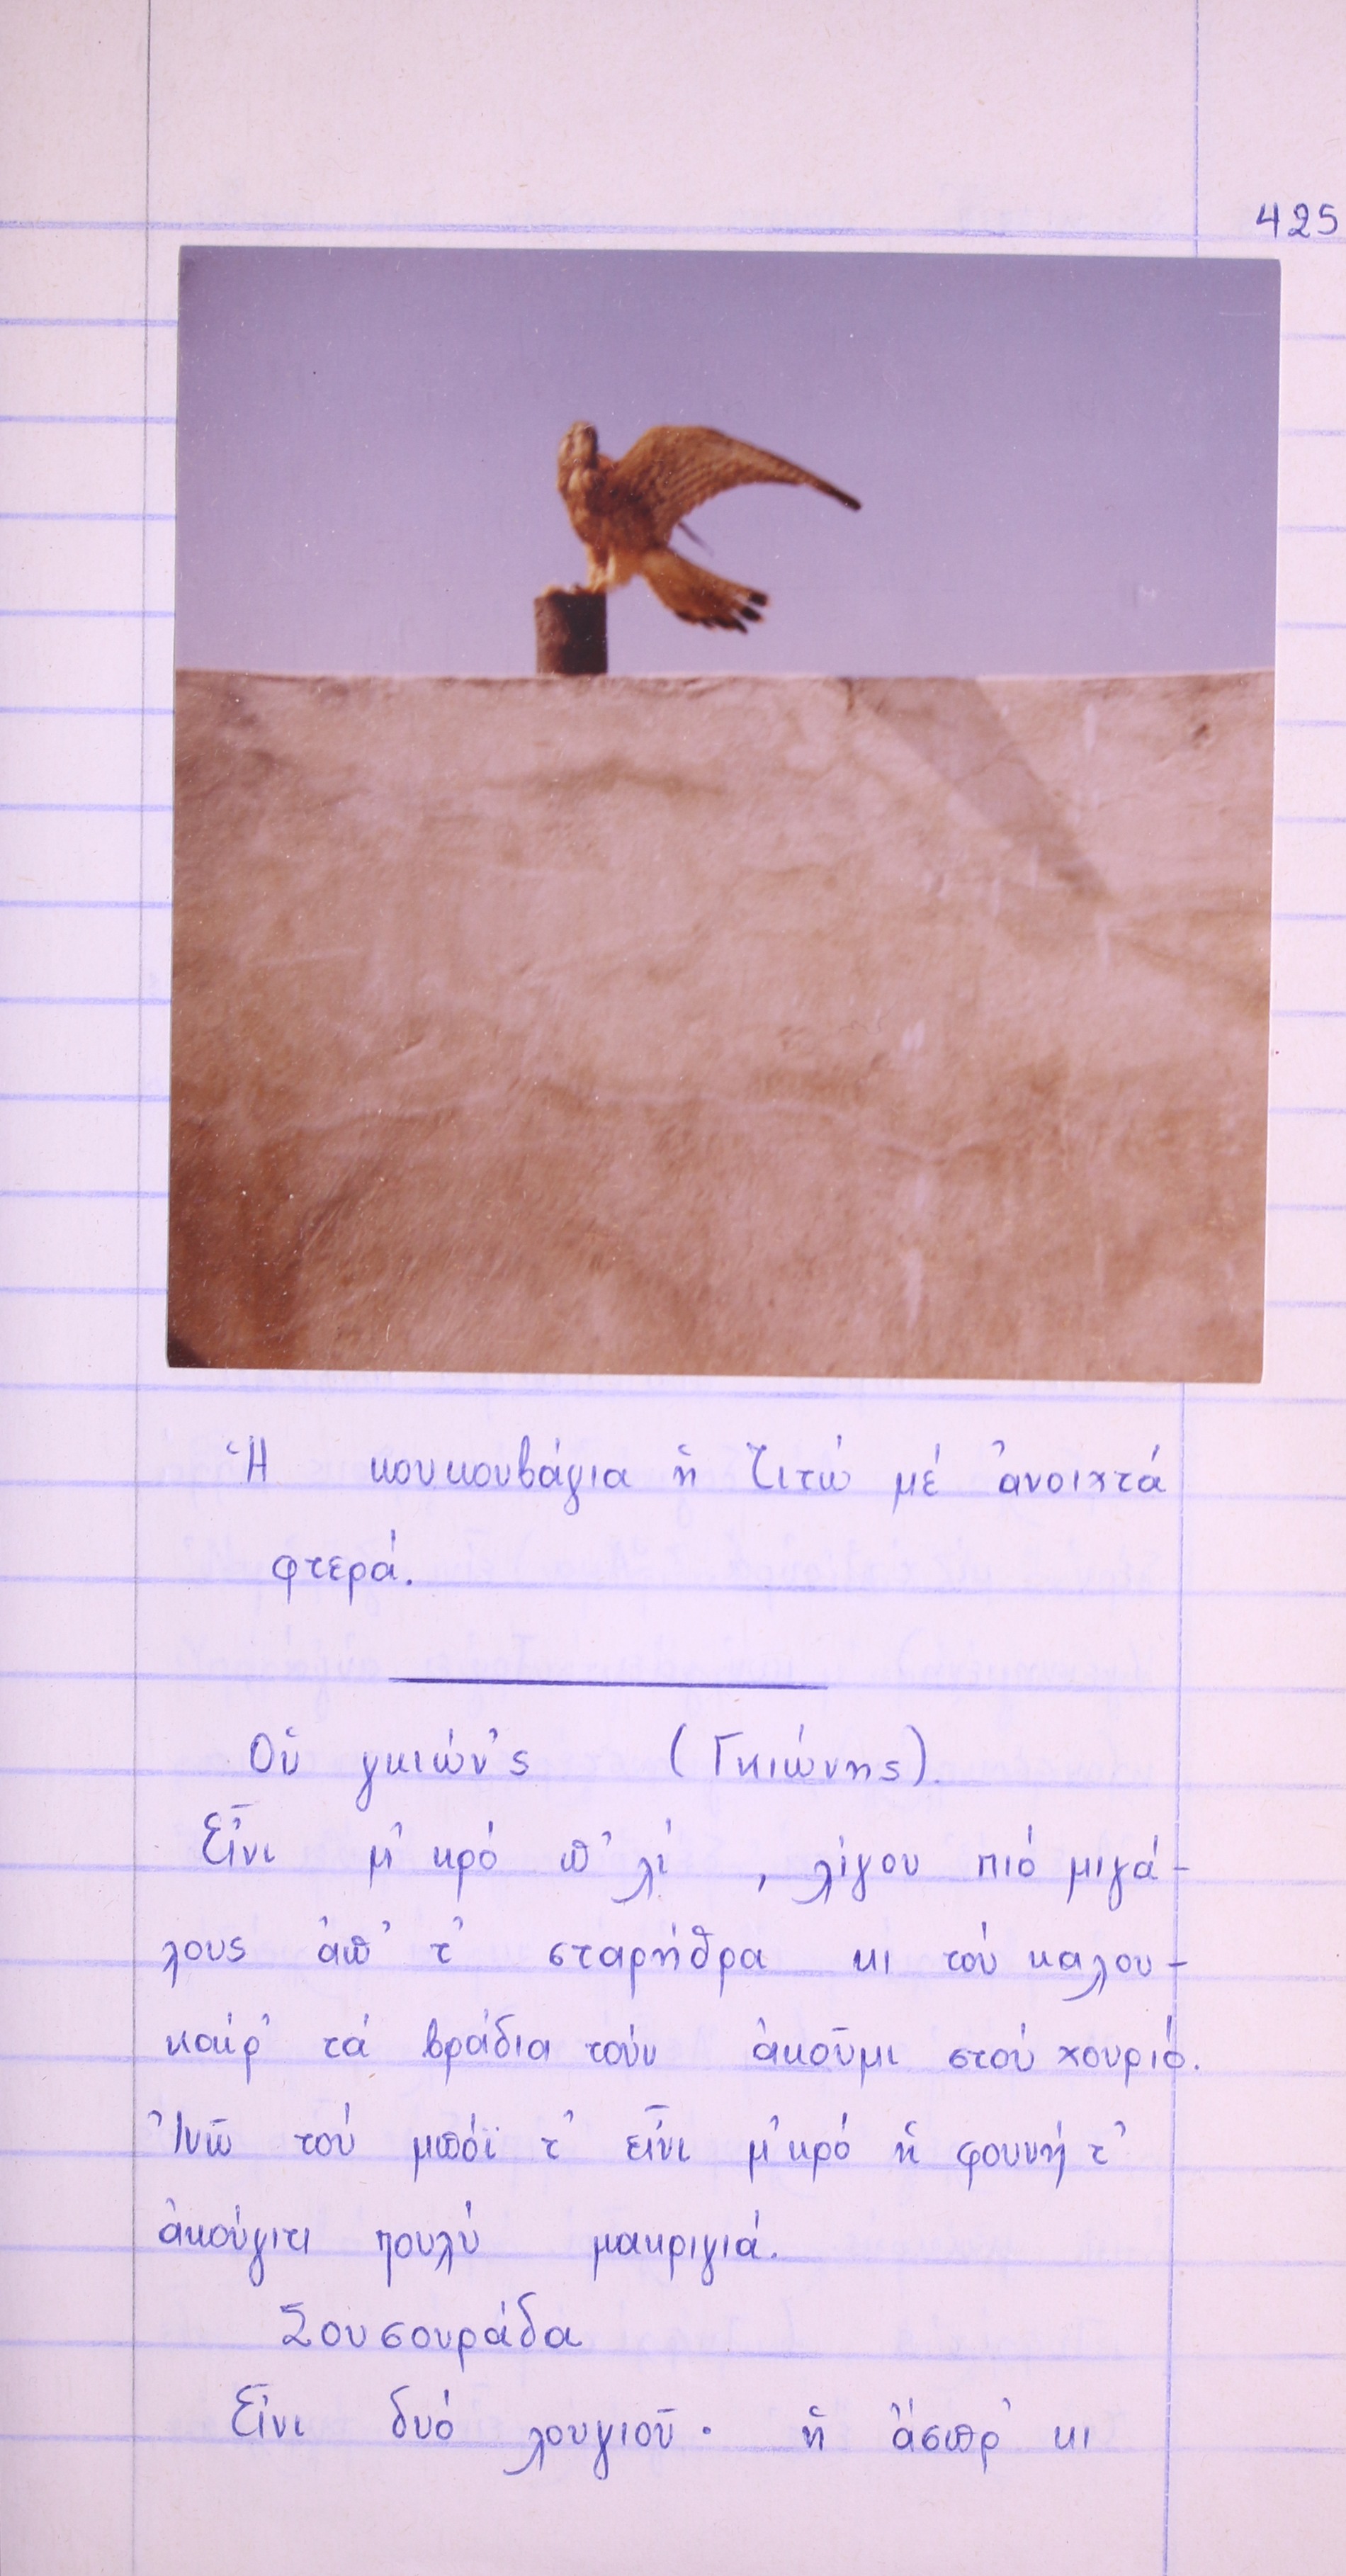 425
Ἡ κουκουβάγια ἤ Τιτώ μέ ἀνοιχτά
φτερά.
Οὑ γκιών'ς (Γκιώνης).
Εἶνι μ'κρό π'λί , λίγου πιό μιγά-
λους ἀπ' τ' σταρήθρα κι τού καλου-
καίρ' τά βράδια τούν ἀκοῦμι στού χουριό.
Ἰνῶ τού μπόϊ τ' εἶνι μ'κρό ἡ φουνή τ'
ἀκούγιτι πουλύ μακριγιά.
Σουσουράδα
Εἶνι δυό λουγιοῦ· ἡ ἄσπρ' κι